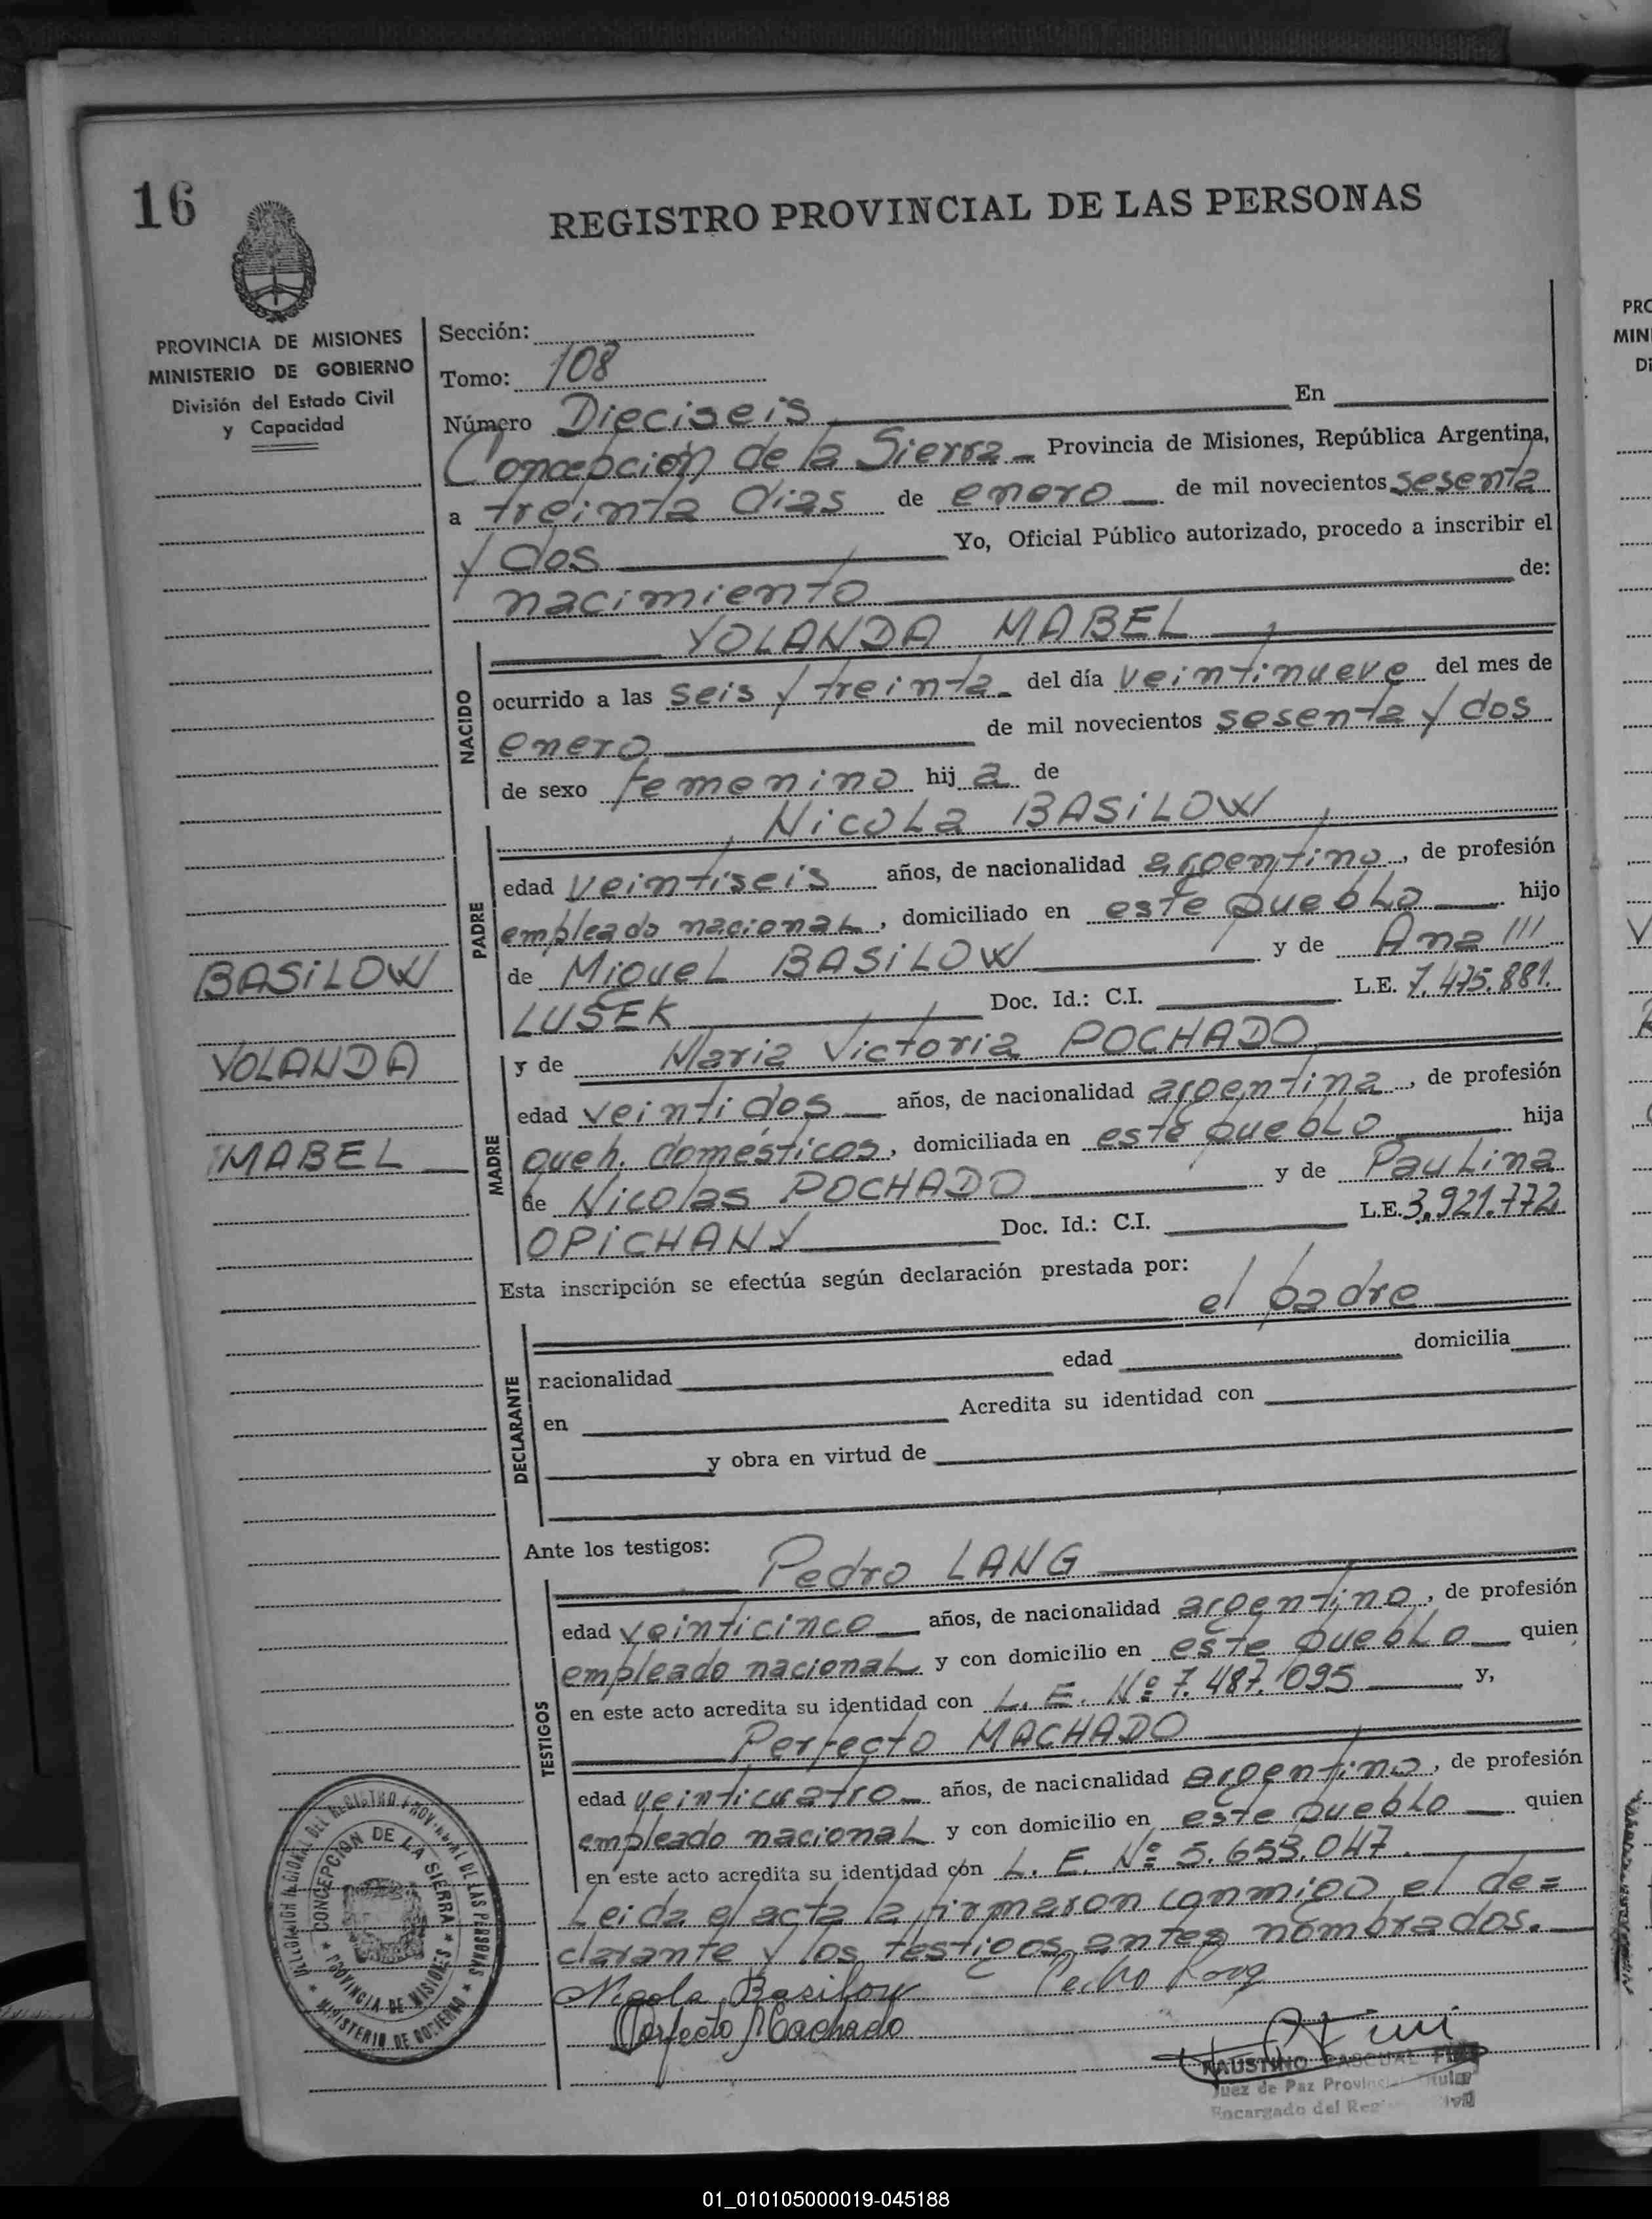 16
REGISTRO PROVINCIAL DE LAS PERSONAS
PROVINCIA DE MISIONES
MINISTERIO DE GOBIERNO
División del Estado Civil
y Capacidad
Sección:
Tomo: 108
Número Dieciseis En
Concepción de la Sierra Provincia de Misiones, República Argentina,
a treinta dias de enero de mil novecientos sesenta
y dos Yo, Oficial Público autorizado, procedo a inscribir el
nacimiento de:
YOLANDA MABEL
NACIDO
ocurrido a las seis y treinta del día veintinueve del mes de
enero de mil novecientos sesenta y dos
de sexo femenino hij a de
Nicola BASILOW
PADRE
edad veintiseis años, de nacionalidad argentino, de profesión
empleado nacional, domiciliado en este pueblo hijo
de Miguel BASILOW y de Ana
LUSEK Doc. Id.: C.I. L.E. 7.475.881.
BASILOW
YOLANDA
MABEL
MADRE
y de Maria Victoria POCHADO
edad veintidos años, de nacionalidad argentina, de profesión
queh. domésticos, domiciliada en este pueblo hija
de Nicolas POCHADO y de Paulina
OPICHANY Doc. Id.: C.I. L.E. 3.921.772
Esta inscripción se efectúa según declaración prestada por:
el padre
DECLARANTE
nacionalidad edad domicilia
en Acredita su identidad con
y obra en virtud de
Ante los testigos:
Pedro LANG
TESTIGOS
edad veinticinco años, de nacionalidad argentino, de profesión
empleado nacional y con domicilio en este pueblo quien
en este acto acredita su identidad con L. E. Nº 7.487.095 y,
Perfecto MACHADO
edad veinticuatro años, de nacionalidad argentino, de profesión
empleado nacional y con domicilio en este pueblo quien
en este acto acredita su identidad con L. E. Nº 5.653.047.
Leida el acta la firmaron conmigo el de=
clarante y los testigos antes nombrados.
Nigola Basilow
Perfecto Machado
DEL REGISTRO PROVINCIAL DE LAS PERSONAS
MINISTERIO DE GOBIERNO
CONCEPCION DE LA SIERRA
PROVINCIA DE MISIONES
FAUSTINO PASCUAL
Juez de Paz Provincial Titular
Encargado del
01_010105000019-045188